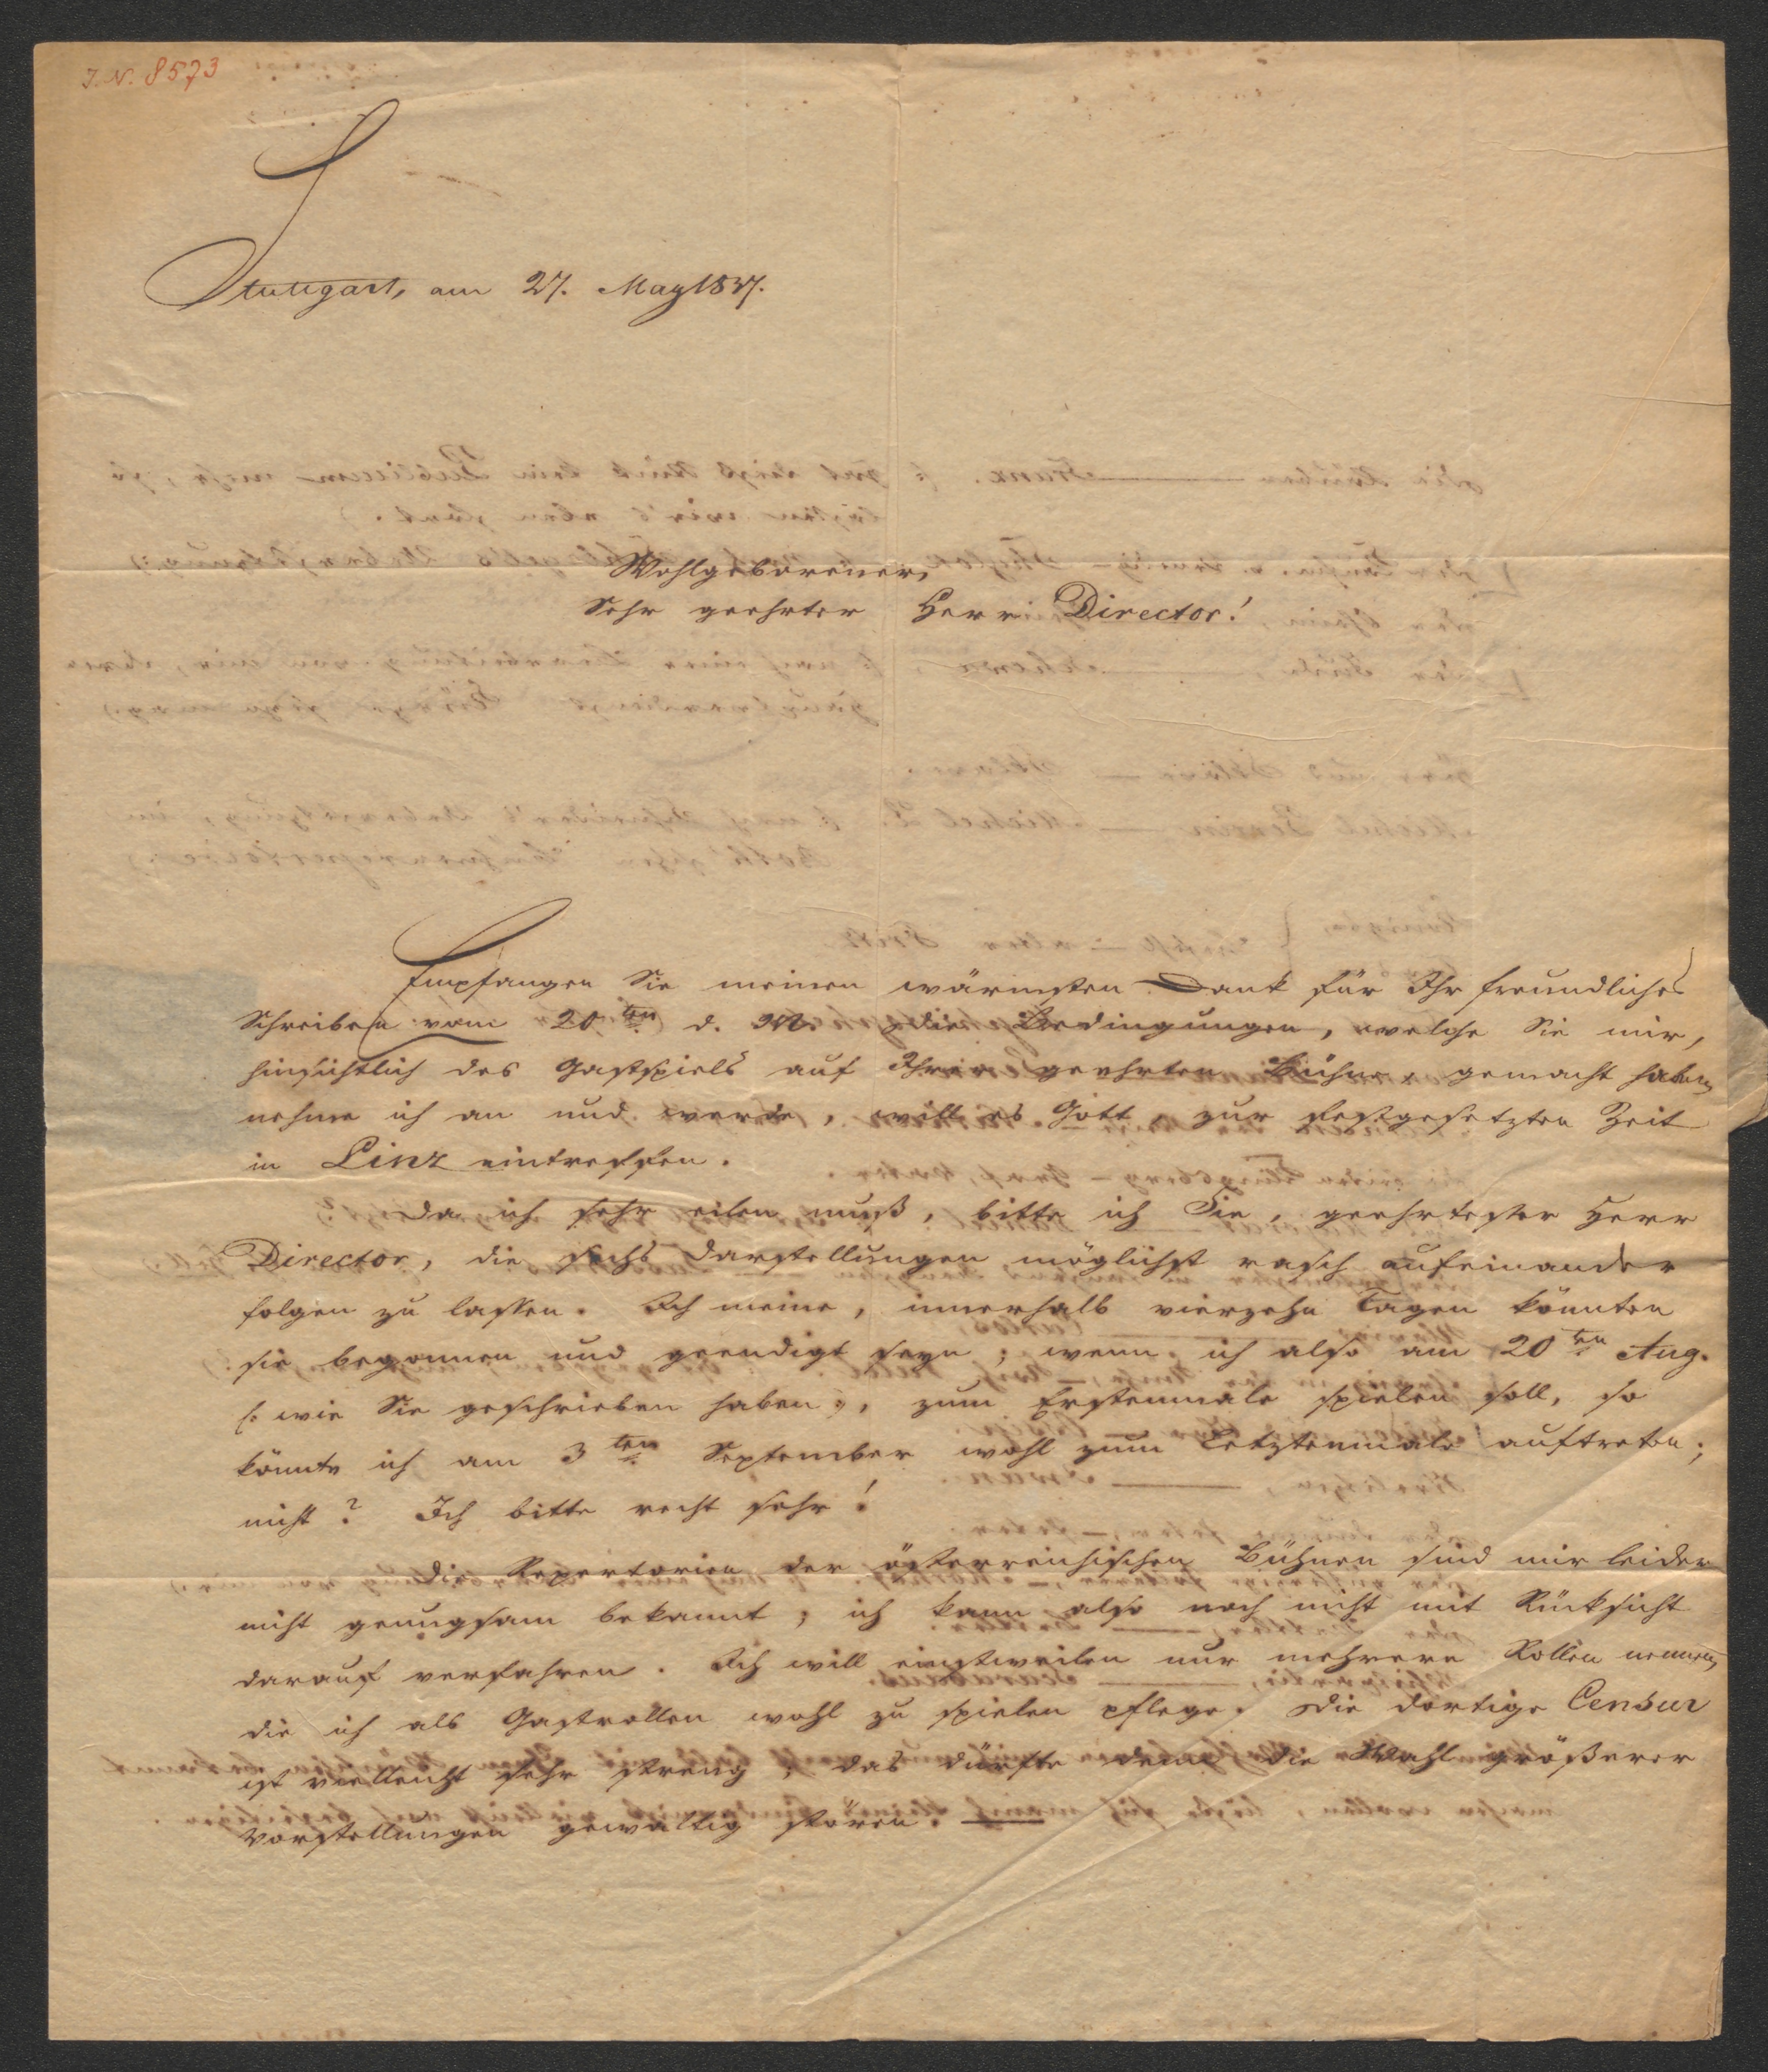 J. N. 8573
Stuttgart, am 27. May 1837.
Wohlgeborener,
Sehr geehrter Herr Director!
Empfangen Sie meinen wärmsten Dank für Ihr freundliches
Schreiben vom 20ten d. M. Die Bedingungen, welche Sie mir,
hinsichtlich des Gastspiels auf Ihrer geehrten Bühne, gemacht haben,
nehme ich an und werde, will es Gott, zur festgesetzten Zeit
in Linz eintreffen.
Da ich sehr eilen muß, bitte ich Sie, geehrtester Herr
Director, die sechs Darstellungen möglichst rasch aufeinander
folgen zu lassen. Ich meine, innerhalb vierzehn Tagen könnten
sie begonnen und geendigt seyn; wenn ich also am 20ten Aug.
(: wie Sie geschrieben haben :), zum Erstenmale spielen soll, so
könnte ich am 3ten September wohl zum Letztenmale auftreten;
nicht? Ich bitte recht sehr!
Die Repertorien der österreichischen Bühnen sind mir leider
nicht genugsam bekannt; ich kann also noch nicht mit Rücksicht
darauf verfahren. Ich will einstweilen nur mehrere Rollen nennen,
die ich als Gastrollen wohl zu spielen pflege. Die dortige Censur
ist vielleicht sehr streng; das dürfte denn die Wahl größerer
Vorstellungen gewaltig stören. —